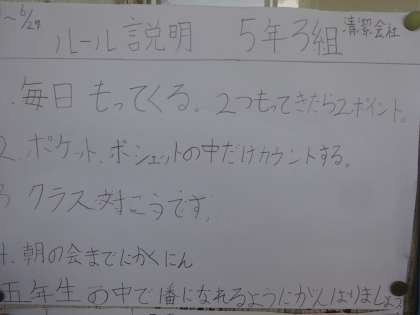 ~6/29
ルール説明 5年3組 清潔会社
.毎日もってくる。2つもってきたら2ポイント。
2.ポケット、ポシェットの中だけカウントする。
3 クラス対こうです。
4.朝の会までにかくにん
五年生の中で1番になれるようにがんばりましょう